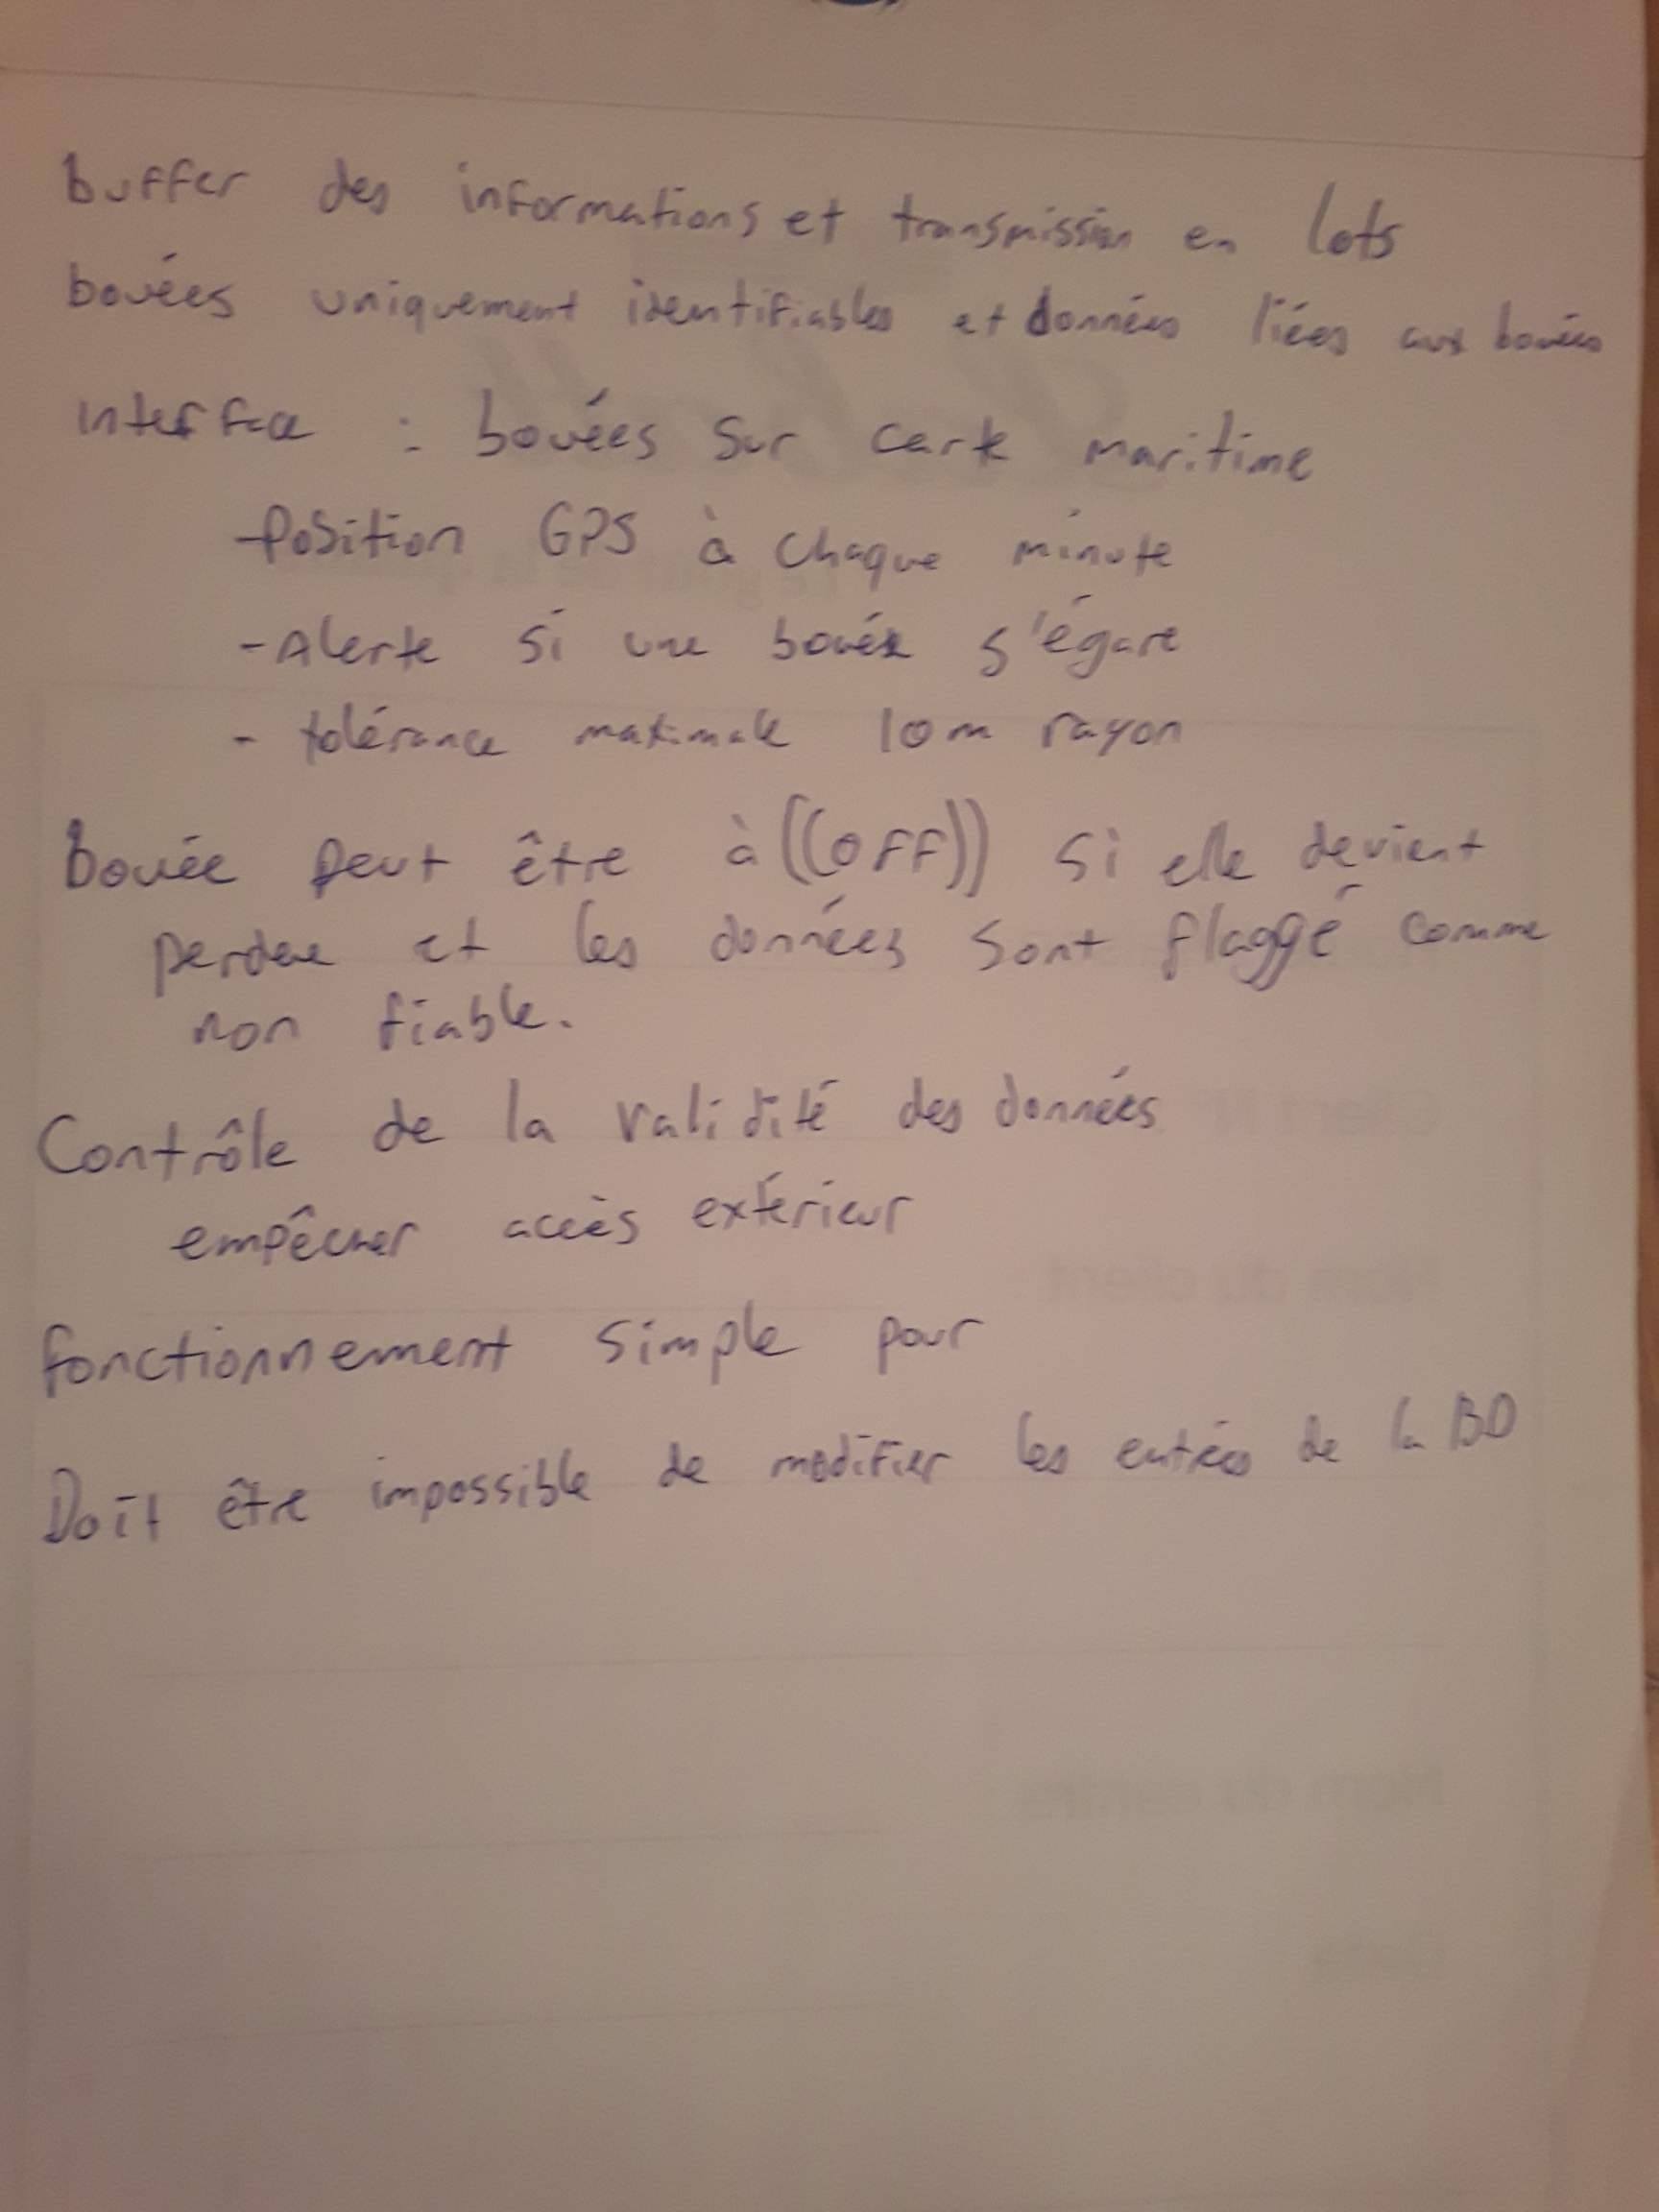 buffer des informations et transmission en lots
bouées uniquement identifiables et données liées aux bouées
interface : bouées sur carte maritime
- Position GPS à chaque minute
- Alerte si une bouée s'égare
- tolérance maximale 10m rayon
bouée peut être à ((OFF)) si elle devient
perdue et les données sont flaggé comme
non fiable.
Contrôle de la validité des données
empêcher accès extérieur
fonctionnement simple pour
Doit être impossible de modifier les entrées de la BD